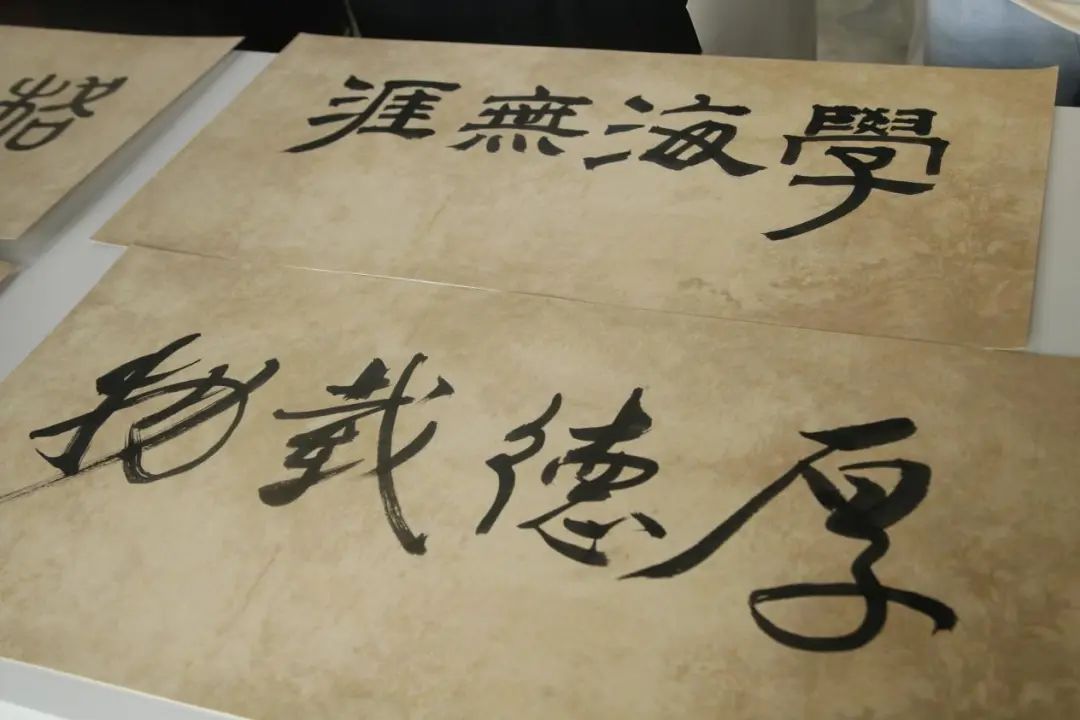 學海無涯
格
厚德載物